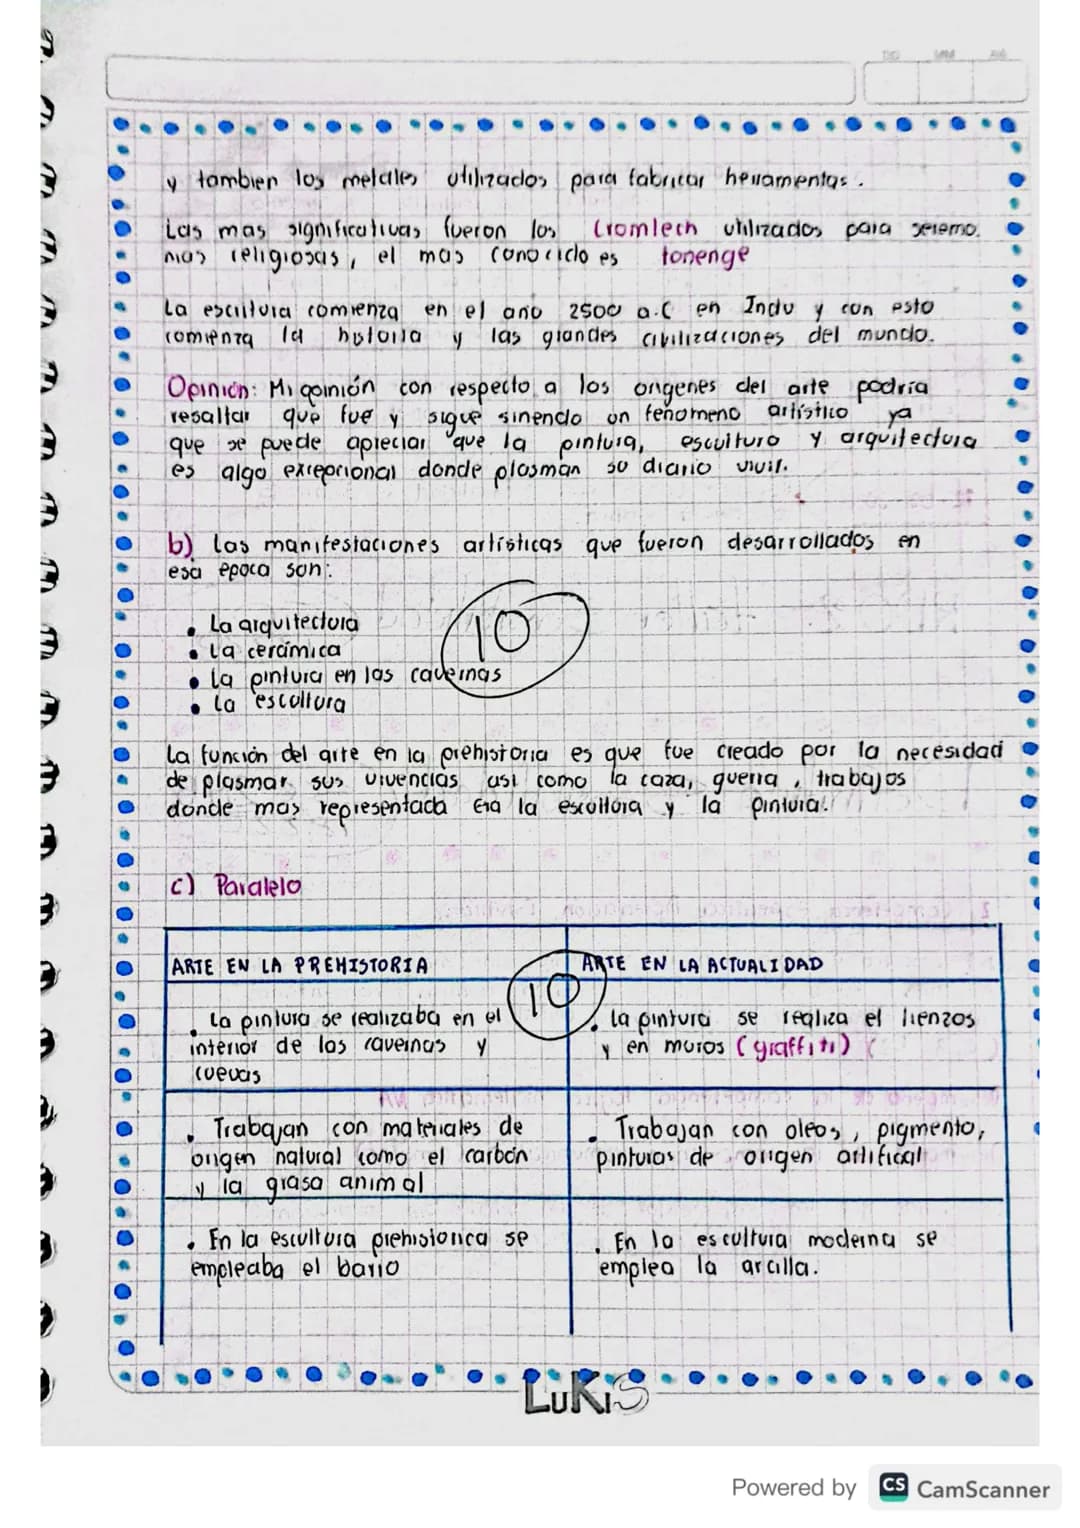 y tambien los metales utilizados para fabricar herramentas.
Las mas significativas fueron los Cromlech utilizados para seremo.
nias religiosas, el mas conocido es tonenge
La escritura comienza en el año 2500 a.C en Indu y con esto
comienza la historia y las grandes civilizaciones del mundo.
Opinion: Mi opinión con respecto a los origenes del arte podria
resaltar que fue y sigue sinendo un fenomeno artístico ya
que se puede apreciar que la pintura, escultura y arquitectura
es algo excepcional donde plasman su diario vivir.
b) Las manifestaciones artísticas que fueron desarrollados en
esa epoca son:
• La arquitectura
• La cerámica
• La pintura en las cavernas
• La escultura
10
La función del arte en la prehistoria es que fue creado por la necesidad
de plasmar sus vivencias asi como la caza, guerra, trabajos
donde mas representada era la escultura y la pintura.
c) Paralelo
ARTE EN LA PREHISTORIA ARTE EN LA ACTUALIDAD
10
• La pintura se realizaba en el • La pintura se realiza el lienzos
interior de las cavernas y y en muros (graffiti)
cuevas
• Trabajan con materiales de • Trabajan con oleos, pigmento,
origen natural como el carbón pinturas de origen artifical
y la grasa animal
• En la escultura prehistorica se • En la escultura moderna se
empleaba el barro emplea la arcilla.
LUKIS
Powered by CS CamScanner